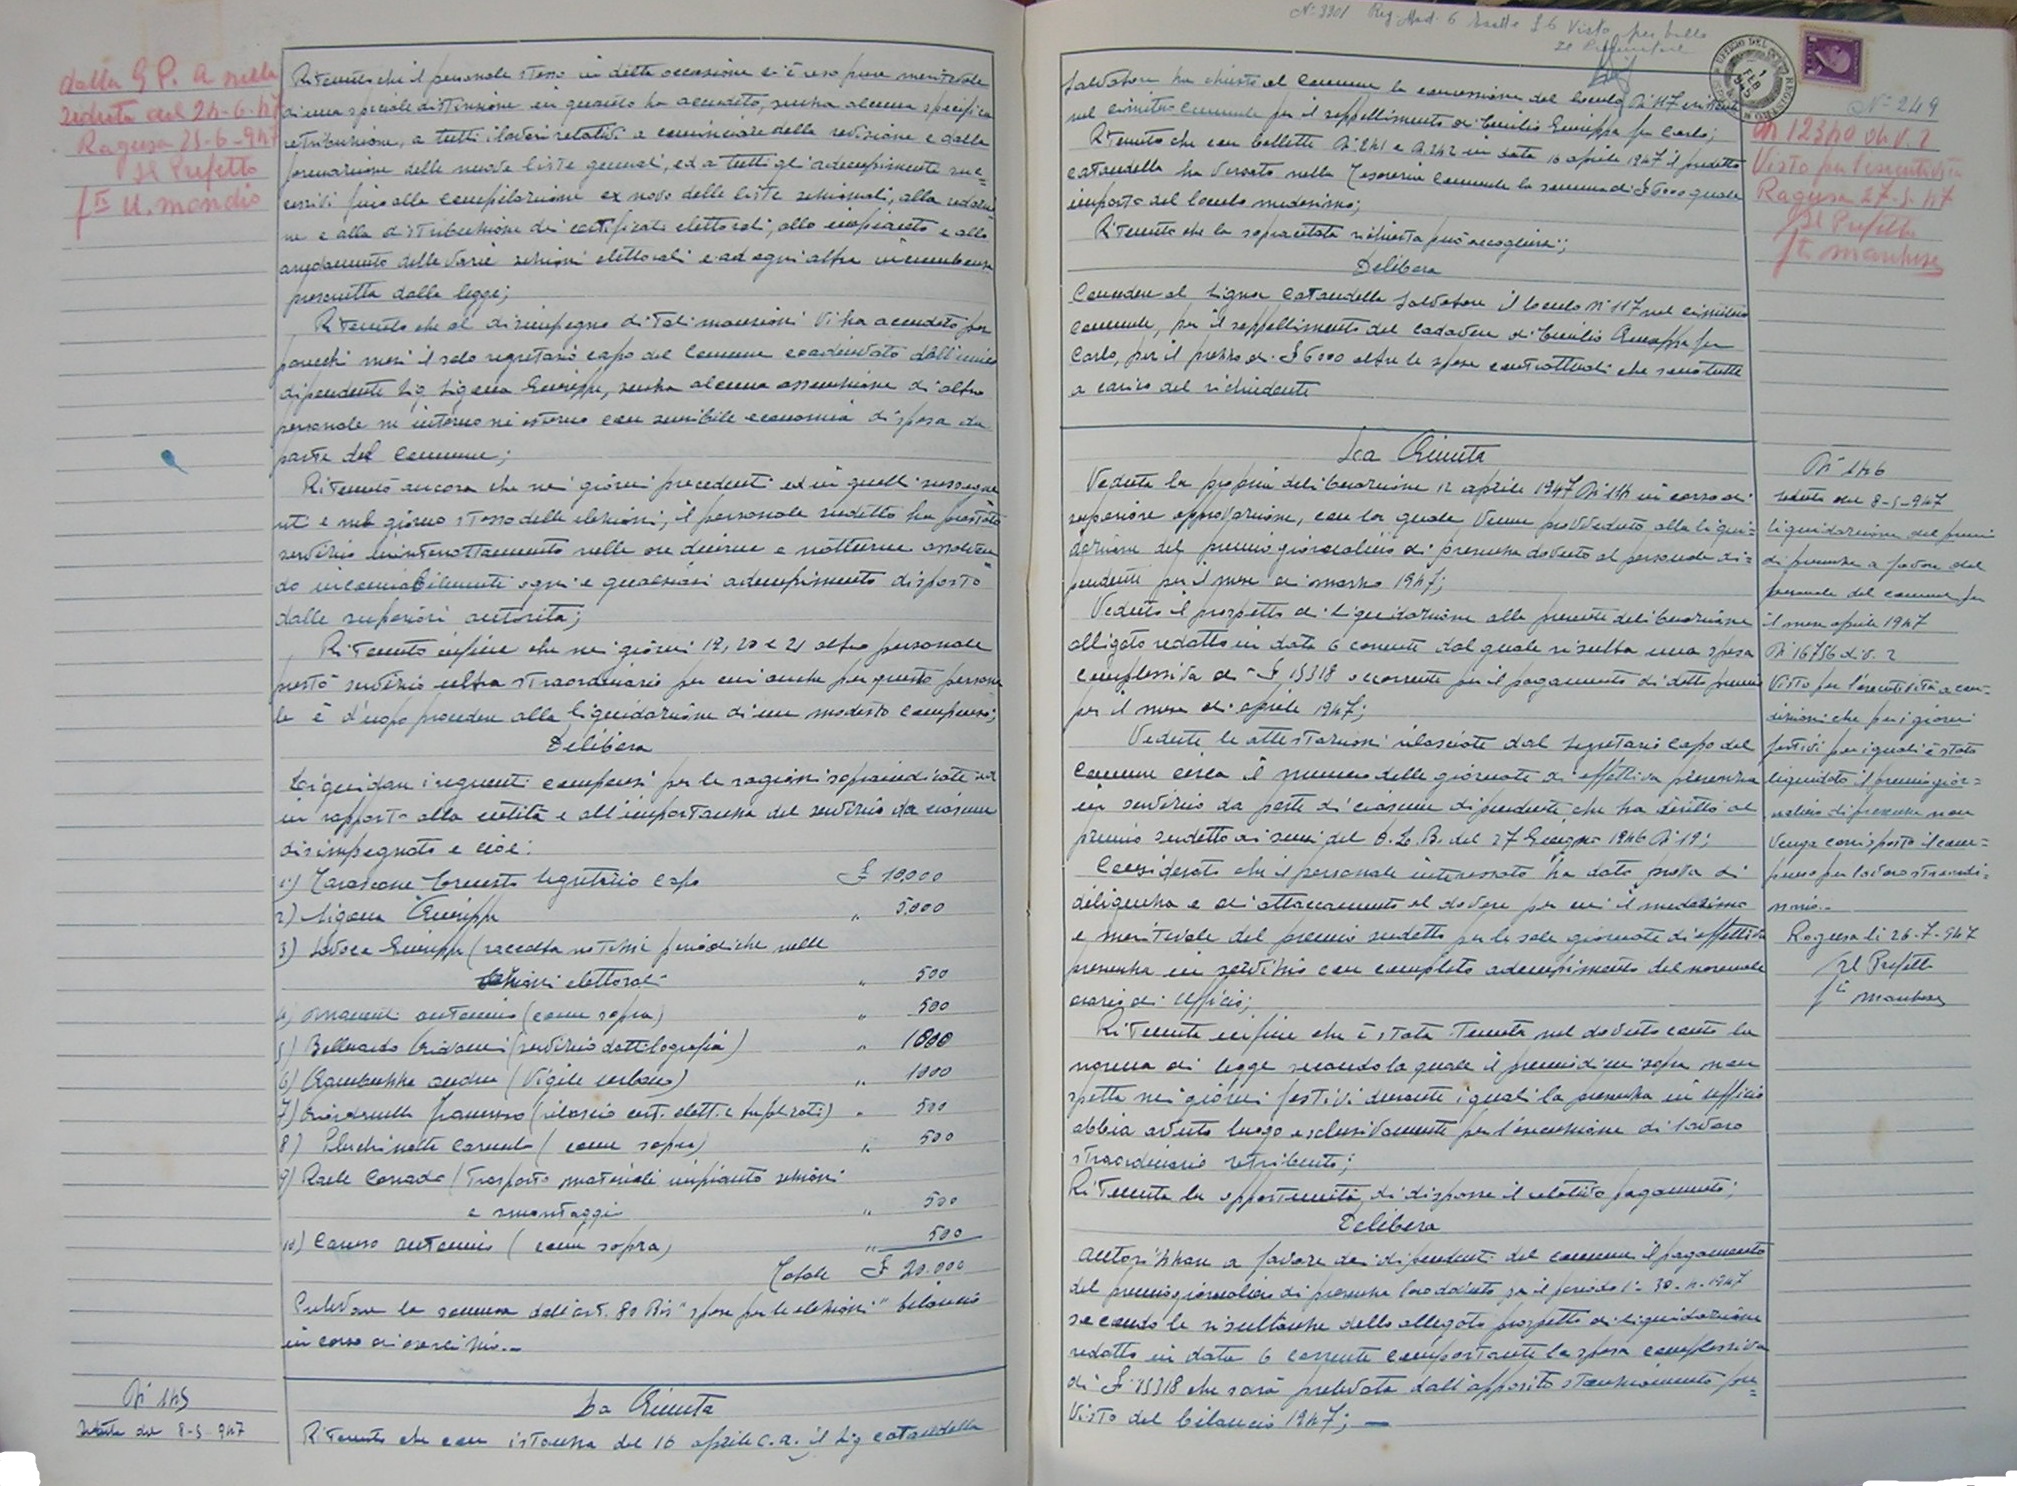 dalla G P. A nella
seduta del 24-6-47
Ragusa 25-6-947
Il Prefetto
fto U. Mondio
Ritenuto che il personale stesso in detta occasione si è reso pure meritevole
di una speciale distinzione in quanto ha accudito, senza alcuna specifica
retribuzione, a tutti i lavori relativi a cominciare dalla revisione e dalla
formazione delle nuove liste generali, ed a tutti gli adempimenti suc=
cessivi fino alla compilazione ex novo delle liste sezionali, alla
ne e alla distribuzione dei certificati elettorali, allo impianto e allo
arredamento delle varie sezioni elettorali e ad ogni altra incombenza
prescritta dalla legge;
Ritenuto che al disimpegno di tali mansioni vi ha accudito per
parecchi mesi il solo segretario capo del Comune coadiuvato dall'unico
dipendente Sig. Ligama Giuseppe, senza alcuna assunzione di altro
personale nè interno nè esterno con sensibile economia di spesa da
parte del Comune;
Ritenuto ancora che nei giorni precedenti ed in quelli susseguen
ti e nel giorno stesso delle elezioni, il personale suddetto ha prestato
servizio ininterrottamente nelle ore diurne e notturne assolven
do ogni e qualsiasi adempimento disposto
dalle superiori autorità;
Ritenuto infine che nei giorni 19, 20 e 21 altro personale
prestò servizio ultra straordinario per cui anche per questo persona
le è d'uopo procedere alla liquidazione di un modesto compenso;
Delibera
Liquidare i seguenti compensi per le ragioni sopraindicate ed
in rapporto alla entità e all'importanza del servizio da ciascuno
disimpegnato e cioè:
1°) Tarascone Ernesto Segretario Capo £ 10.000
2) Ligama Giuseppe " 5.000
3) Giuseppe (raccolta notizie periodiche nelle
sezioni elettorali " 500
4) Antonio (come sopra) " 500
5) Belluardo Giovanni (servizio dattilografia) " 1000
6) Andrea (Vigile urbano) " 1000
7) Francesco (rilascio cert. elett. e duplicati) " 500
8) Pluchinotta Carmelo (come sopra) " 500
9) Raele Corrado (Trasporto materiale impianto sezioni
e smontaggi " 500
10) Caruso Antonio (come sopra) " 500
Totale £ 20.000
Prelevare la somma dall'art. 80 Bis "spese per le elezioni" bilancio
in corso di esercizio.-
N° 145
Seduta del 8-5-947
La Giunta
Ritenuto che con istanza del 16 aprile c.a. il Sig Cataudella
N° 3301 Reg. Mod. 6 Esatte £ 6 Visto per bollo
Il Procuratore
UFFICIO DEL REGISTRO
N° 249
Salvatore ha chiesto al Comune la concessione del loculo N 117 in
nel cimitero comunale per il seppellimento di Emilio Giuseppa fu Carlo;
Ritenuto che con bollette N 241 e N 242 in data 10 aprile 1947 il predetto
Cataudella ha versato nella Tesoreria Comunale la somma di £ 6000 quale
importo del loculo medesimo;
Ritenuto che la sopracitata richiesta può accogliersi;
Delibera
Concedere al Signor Cataudella Salvatore il loculo N° 117 nel cimitero
comunale, per il seppellimento del cadavere di Emilio Giuseppa fu
Carlo, per il prezzo di £ 6000 oltre le spese contrattuali che sono tutte
a carico del richiedente
N 12340 div. 2
Visto per l'esecutività
Ragusa 27-5-47
Il Prefetto
fto Marchese
La Giunta
Veduta la propria deliberazione 12 aprile 1947 N 114 in corso di
superiore approvazione, con la quale venne provveduto alla liqui=
dazione del premio giornaliero di presenza dovuto al personale di=
pendente per il mese di marzo 1947;
Veduto il prospetto di liquidazione alla presente deliberazione
allegato redatto in data 6 corrente dal quale risulta una spesa
complessiva di £ 15318 occorrente per il pagamento di detto premio
per il mese di aprile 1947;
Vedute le attestazioni rilasciate dal Segretario Capo del
Comune circa il numero delle giornate di effettiva presenza
in servizio da parte di ciascun dipendente che ha diritto al
premio suddetto ai sensi del D. L. del 27 Giugno 1946 N 19;
Considerato che il personale interessato ha dato prova di
diligenza e di attaccamento al dovere per cui il medesimo
è meritevole del premio suddetto per le sole giornate di effettiva
presenza in servizio con completo adempimento del normale
orario di ufficio;
Ritenuto infine che è stata tenuta nel dovuto conto la
norma di legge secondo la quale il premio di cui sopra non
spetta nei giorni festivi durante i quali la presenza in ufficio
abbia avuto luogo esclusivamente per l'esecuzione di lavoro
straordinario retribuito;
Ritenuta la opportunità di disporre il relativo pagamento;
Delibera
Autorizzare a favore dei dipendenti del Comune il pagamento
del premio giornaliero di presenza loro dovuto per il periodo 1°- 30-4-1947
secondo le risultanze dello allegato prospetto di liquidazione
redatto in data 6 corrente comportante la spesa complessiva
di £ 15318 che sarà prelevata dall'apposito stanziamento pre=
visto del bilancio 1947; —
N° 146
seduta del 8-5-947
Liquidazione del premio
di presenza a favore del
personale del comune per
il mese aprile 1947
N 16756 div. 2
Visto per l'esecutività a con=
dizioni che per i giorni
festivi per i quali è stato
liquidato il premio gior=
naliero di presenza non
venga corrisposto il com=
penso per lavoro straordi=
nario.-
Ragusa li 26-7-947
Il Prefetto
fto Marchese